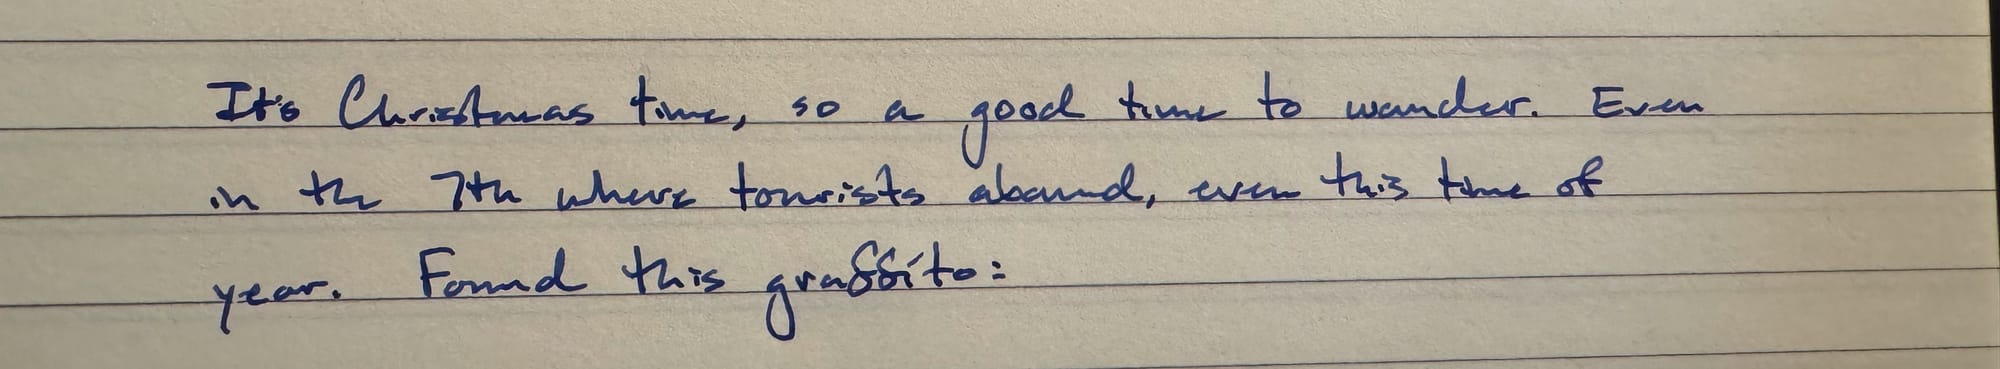 It's Christmas time, so a good time to wander. Even
in the 7th where tourists abound, even this time of
year. Found this graffito: